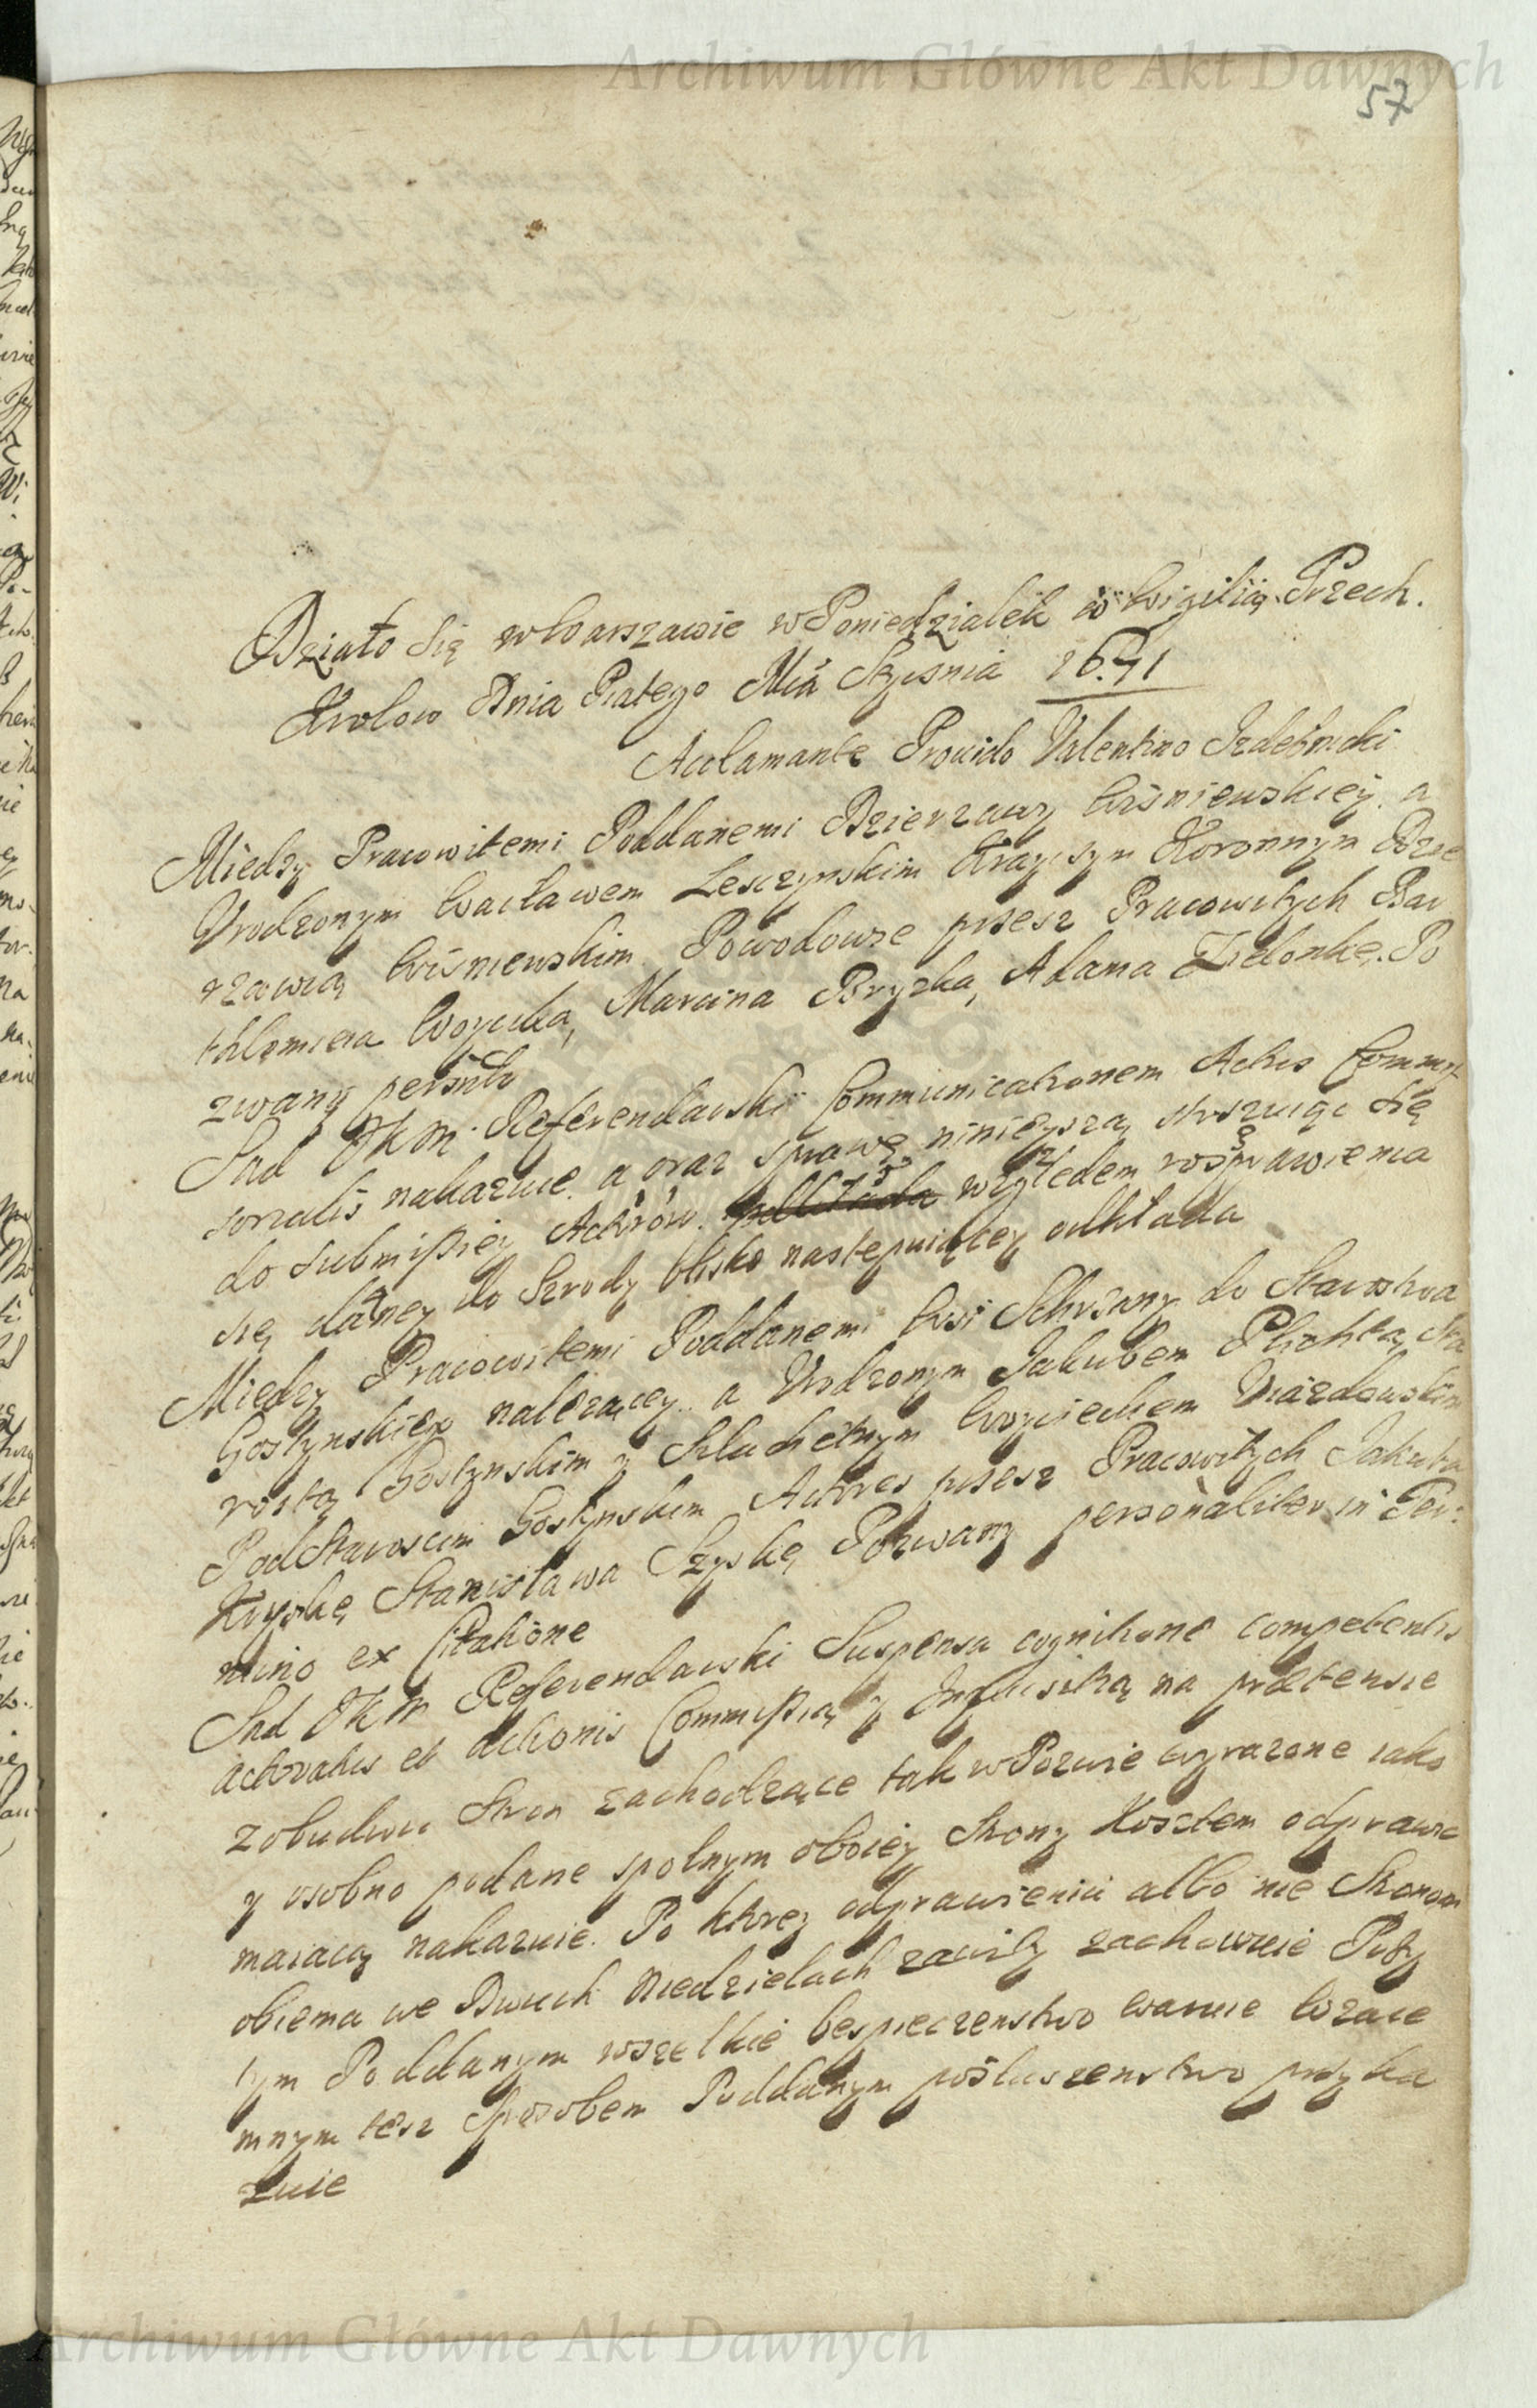 Archiwum Główne Akt Dawnych
57
Działo Się w Warszawie w Poniedziałek w Wigilią Trzech.
Krolow Dnia Piatego Mca Stycsnia 1671
Acclamante Provido Valentino Izdebnicki
Miedzy Pracowitemi Poddanemi Dzierzawy Wisniewskiey. a
Urodzonym Wacławem Lesczynskim Krayczym Koronnym Dzie
rzawcą Wisniewskim. Powodowie przesz Pracowitych Bar
thłomieia Woyczka, Marcina Bryzka, Adama Zielonkę. Po
zwany personlr
Sąd JKM. Referendarski Communicationem Actus Commis
sorialis nakazuie. a oraz sprawę ninieyszą, stosuiąc się
do submissiey Actorow. względem rosprawienia
się daney do Szrody blisko nastepuiącey odkłada
Miedzy Pracowitemi Poddanemi Wsi Schrzany do Starostwa
Gostynskiego nalezącey. a Urodzonym Jakubem Plichtą Sta
rostą Gostynskim y Szlachetnym Woyciechem Uiazdowskim
Podstarosscim Gostynskim Actores przesz Pracowitych Jakuba
Kryskę Stanisława Szyskę Pozwany personaliter in Ter:
mino ex Citatione
Sąd JKM Referendarski Suspensa cognitione competentis
actoratus et actionis Commissią y Inquisitią na praetensie
z obudwu Stron zachodzące tak w Pozwie wyrazone iako
y osobno podane spolnym oboiey Strony Kosztem odprawic
maiacą nakazuie. Po ktorey odprawieniu albo nie Stronom
obiema we Dwuch Niedzielach zawity zachowuie Przy
tym Poddanym wszelkie bespieczenstwo waruie Wzaie
mnym tesz Sposobem Poddanym posłuszenstwo przyka
zuie
Archiwum Główne Akt Dawnych